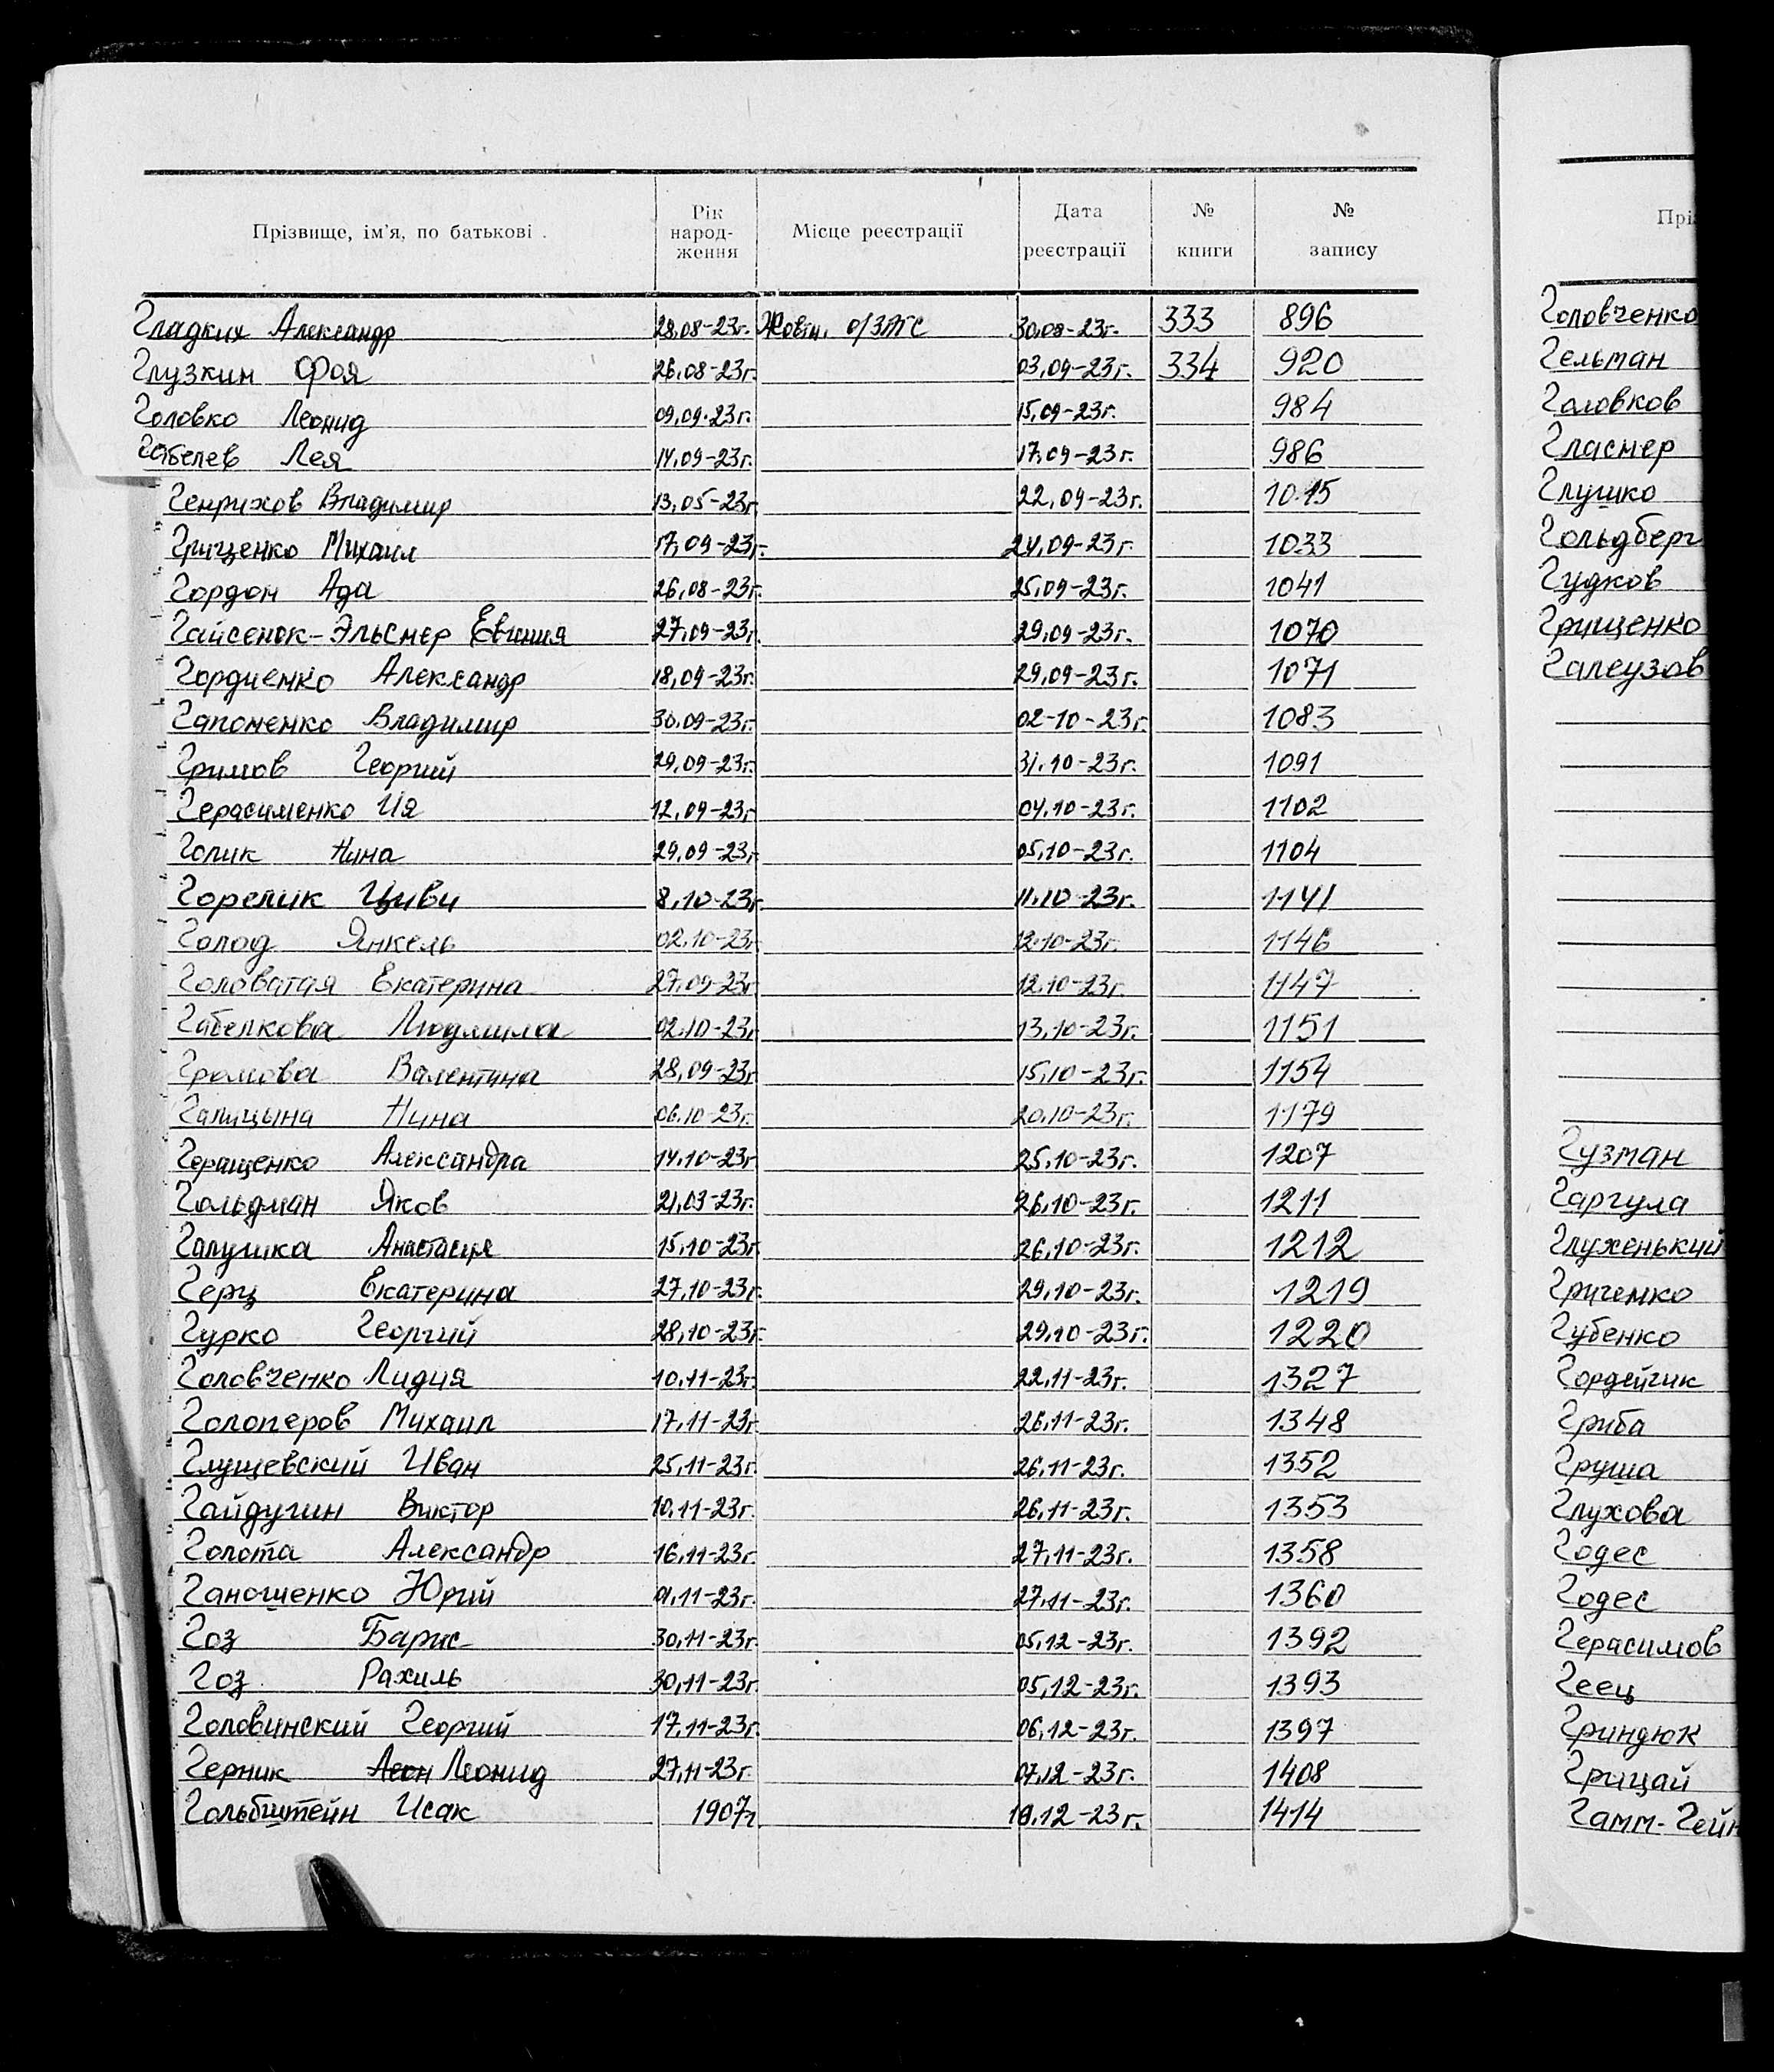 Прізвище, ім'я, по батькові Рік народ- ження Місце реєстрації Дата реєстрації № книги № запису
Гладких Александр 28.08-23г. Жовтн. о/ЗАГС 30.08-23г. 333 896
Глузкин Фоя 26.08-23г. 03.09-23г. 334 920
Головко Леонид 09.09.23г. 15.09-23г. 984
Лея 14.09-23г. 17.09-23г. 986
Генрихов Владимир 13.05-23г. 22.09-23г. 1015
Гриценко Михаил 17.09-23г. 24.09-23г. 1033
Гордон Ада 26.08-23г. 25.09-23г. 1041
Гайсенок-Эльснер Евгения 27.09-23г. 29.09-23г. 1070
Гордиенко Александр 18.09-23г. 29.09-23г. 1071
Гапоненко Владимир 30.09-23г. 02-10-23г. 1083
Гримов Георгий 29.09-23г. 31.10-23г. 1091
Герасименко Ия 12.09-23г 04.10-23г. 1102
Голик Нина 29.09-23г 05.10-23г. 1104
Горелик Циви 8.10-23г 11.10-23г. 1141
Голод Янкель 02.10-23г 12.10-23г. 1146
Головатая Екатерина 27.09-23г 12.10-23г. 1147
Габелкова Людмила 02.10-23г 13.10-23г. 1151
Громова Валентина 28.09-23г 15.10-23г. 1154
Галицына Нина 06.10-23г. 20.10-23г. 1179
Геращенко Александра 14.10-23г 25.10-23г. 1207
Гольдман Яков 21.03-23г. 26.10-23г. 1211
Галушка Анастасия 15.10-23г. 26.10-23г. 1212
Герц Екатерина 27.10-23г. 29.10-23г. 1219
Гурко Георгий 28.10-23г. 29.10-23г. 1220
Головченко Лидия 10.11-23г. 22.11-23г. 1327
Голоперов Михаил 17.11-23г. 26.11-23г. 1348
Глущевский Иван 25.11-23г. 26.11-23г. 1352
Гайдугин Виктор 10.11-23г. 26.11-23г. 1353
Голота Александр 16.11-23г. 27.11-23г. 1358
Ганошенко Юрий 01.11-23г. 27.11-23г. 1360
Гоз Барис 30.11-23г. 05.12-23г. 1392
Гоз Рахиль 30.11-23г. 05.12-23г. 1393
Головинский Георгий 17.11-23г. 06.12-23г. 1397
Герник Леон Леонид 27.11-23г. 07.12-23г. 1408
Гольбштейн Исак 1907г. 12-23г. 1414
Прі
Головченко
Гельман
Головков
Гласнер
Глушко
Гольдберг
Гудков
Грищенко
Галеузов
Гузман
Гаргула
Глуженький
Гриченко
Губенко
Гордейчик
Гриба
Груша
Глухова
Годес
Годес
Герасимов
Геец
Гриндюк
Грицай
Гамм-Гейн